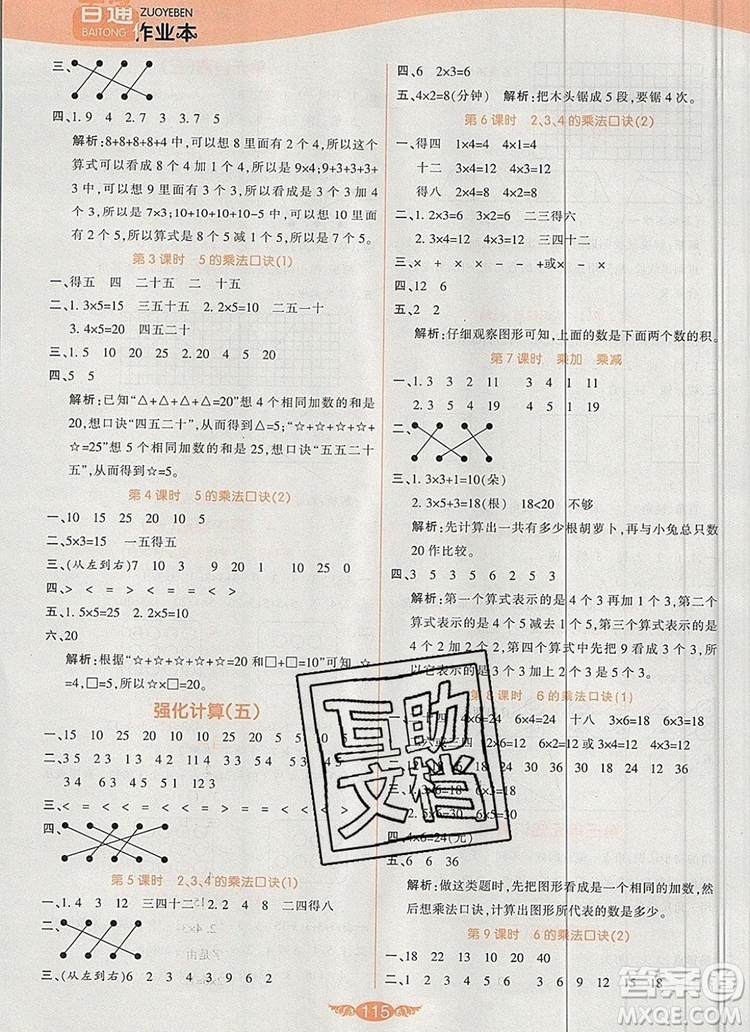 百通
ZUOYEBEN
BAITONG
作业本
三、
四、1. 9 4 2. 7 3 3. 7 5
解析:8+8+8+8+4 中,可以看成 4 可以分成
4 个 1,和前面 4 个 8 组成 4 个 9,所以这个
算式可以看成 8
所以是 9×4;9+3+3+3+
3+3 中,可以把 9 里面有 3 个 3,所以这个算
式可以看成 8 个 3 减
2 个 5,所以算式是 8 个 5 减 1 个 5,所以
第 3 课时 5 的乘法口诀(1)
一、得五 四 二十五 二 十五
二、1. 3×5=15 三五十五 2. 2×5=10 二五一十
3. 4×5=20 四五二十
三、
四、5 5
解析:已知“△+△+△+△=20”想 4 个相同加数的和是
20,想口诀“四五二十”,从而得到△=5。☆+☆+☆+☆
+☆=25”想 5 个相同加数的和是 25,想口诀“五五二十
五”,从而得到☆=5。
第 4 课时 5 的乘法口诀(2)
一、10 15 25 20 10 5
二、5×3=15 一五得五
三、(从左到右)7 10 9 13 10 15 25 0
四、> < = > < = > < =
五、1. 5×5=25 2. 2×5=10
六、20
解析:根据“☆+☆+☆+☆+☆=20 和☆=□+□”可知,☆
=4,□=2,所以☆×□=20。
强化计算(五)
一、15 10 25 20 5 15 20 10 10 5
二、5 3 2 14 1 5 23 35 41 2 4 5 3 4
5 2 3 4 3 5 12 3
三、< = < < = < = < < = < = < = < < = <
四、
第 5 课时 2、3、4 的乘法口诀(1)
一、1. 9 4 12 三四十二 2. 2 4 8 二四得八
二、
三、(从左到右)6 2 3 4 3 9 6 2
四、6 2×3=6
五、4×2=8(分钟) 解析:把木头锯成 5 段,要锯 4 次。
第 6 课时 2、3、4 的乘法口诀(2)
一、得四 1×4=4 4×1=4
十二 3×4=12 4×3=12
得八 2×4=8 4×2=8
二、1. 2×3=6 3×2=6 二三得六
2. 3×4=12 4×3=12 三四十二
三、- × × × - - +或× - ×
四、12 6
五、2 2
解析:仔细观察图形可知,上面的数是下面两个数的积。
第 7 课时 乘加 乘减
一、1. 3 3 2 11 3 4 3 11
2. 3 5 4 19 4 5 1 19
二、
三、1. 3×3+1=10(朵)
2. 3×5+3=18(根) 18<20 不够
解析:先计算出一共有多少根胡萝卜,再与小兔总只数
20 作比较。
四、3 5 3 5 6 2 5 3
解析:第一个算式表示的是 4 个 3 加 1 个 3,第二个算
式表示的是 4 个 5 减去 1 个 5,第三个算式表示的是 5
个 6 加 1 个 6,第四个算式表示的是 4 个 3 加 1 个 3,所
以它表示的是 2 个 3 加上 3 个 3,是 5 个 3。
第 8 课时 6 的乘法口诀(1)
4×6=24 6×4=24 十八 3×6=18 6×3=18
18 24 30 36 18 30 12
3×6=18 2. 5×6=30
四、4×6=24(元)
五、6 6 36
解析:做这类题时,只要想几个是一个相同的加数,然
后想乘法口诀,计算出图形所代表的数是多少。
第 9 课时 6 的乘法口诀(2)
一、18 22 30 6 24 0 12 36
二、1 2 3 4 5 6 3 6 9 12 15 18
互助
文档
115
答案圈
MXQE.COM